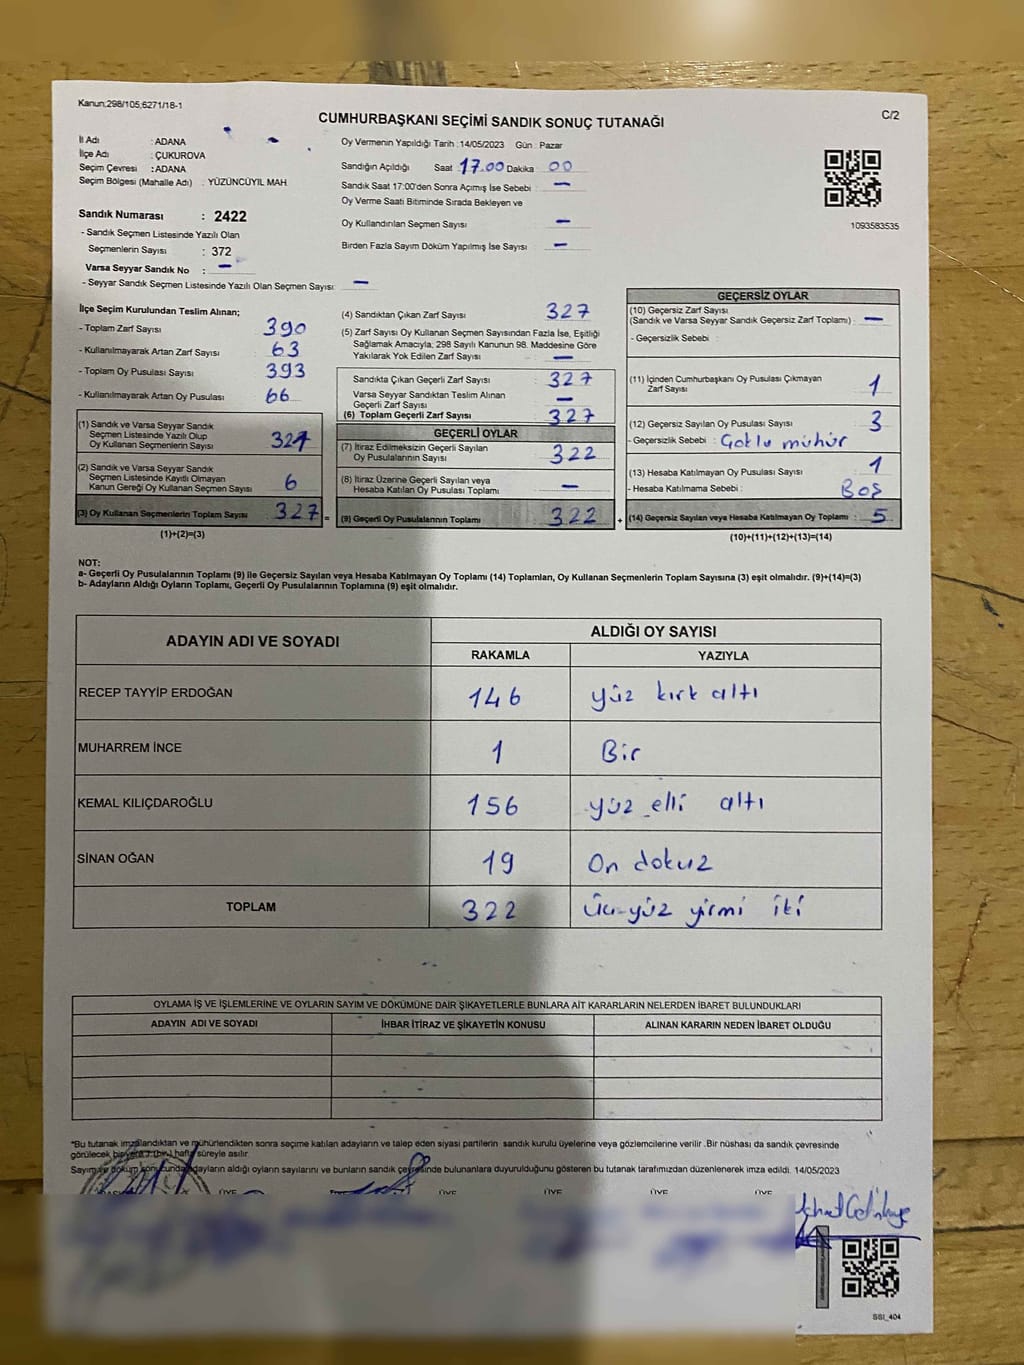 Kanun;298/105;6271/18-1
C/2
CUMHURBAŞKANI SEÇİMİ SANDIK SONUÇ TUTANAĞI
İl Adı : ADANA
İlçe Adı : ÇUKUROVA
Seçim Çevresi : ADANA
Seçim Bölgesi (Mahalle Adı) : YÜZÜNCÜYIL MAH.
Sandık Numarası : 2422
- Sandık Seçmen Listesinde Yazılı Olan
Seçmenlerin Sayısı : 372
Varsa Seyyar Sandık No : -
- Seyyar Sandık Seçmen Listesinde Yazılı Olan Seçmen Sayısı: -
Oy Vermenin Yapıldığı Tarih : 14/05/2023 Gün : Pazar
Sandığın Açıldığı Saat 17.00 Dakika 00
Sandık Saat 17:00'den Sonra Açımış İse Sebebi : -
Oy Verme Saati Bitiminde Sırada Bekleyen ve
Oy Kullandırılan Seçmen Sayısı -
Birden Fazla Sayım Döküm Yapılmış İse Sayısı -
1093583535
İlçe Seçim Kurulundan Teslim Alınan;
- Toplam Zarf Sayısı 390
- Kullanılmayarak Artan Zarf Sayısı 63
- Toplam Oy Pusulası Sayısı 393
- Kullanılmayarak Artan Oy Pusulası 66
(1) Sandık ve Varsa Seyyar Sandık
Seçmen Listesinde Yazılı Olup
Oy Kullanan Seçmenlerin Sayısı
(2) Sandık ve Varsa Seyyar Sandık
Seçmen Listesinde Kayıtlı Olmayan
Kanun Gereği Oy Kullanan Seçmen Sayısı 6
(3) Oy Kullanan Seçmenlerin Toplam Sayısı 327 =
(1)+(2)=(3)
(4) Sandıktan Çıkan Zarf Sayısı 327
(5) Zarf Sayısı Oy Kullanan Seçmen Sayısından Fazla İse, Eşitliği
Sağlamak Amacıyla; 298 Sayılı Kanunun 98. Maddesine Göre
Yakılarak Yok Edilen Zarf Sayısı -
Sandıkta Çıkan Geçerli Zarf Sayısı 327
Varsa Seyyar Sandıktan Teslim Alınan
Geçerli Zarf Sayısı -
(6) Toplam Geçerli Zarf Sayısı 327
GEÇERLİ OYLAR
(7) İtiraz Edilmeksizin Geçerli Sayılan
Oy Pusulalarının Sayısı 322
(8) İtiraz Üzerine Geçerli Sayılan veya
Hesaba Katılan Oy Pusulası Toplamı -
(9) Geçerli Oy Pusulalarının Toplamı 322 +
GEÇERSİZ OYLAR
(10) Geçersiz Zarf Sayısı
(Sandık ve Varsa Seyyar Sandık Geçersiz Zarf Toplamı) : -
- Geçersizlik Sebebi :
(11) İçinden Cumhurbaşkanı Oy Pusulası Çıkmayan
Zarf Sayısı 1
(12) Geçersiz Sayılan Oy Pusulası Sayısı 3
- Geçersizlik Sebebi : Çoklu mühür
(13) Hesaba Katılmayan Oy Pusulası Sayısı 1
- Hesaba Katılmama Sebebi : Boş
(14) Geçersiz Sayılan veya Hesaba Katılmayan Oy Toplamı : 5
(10)+(11)+(12)+(13)=(14)
NOT:
a- Geçerli Oy Pusulalarının Toplamı (9) ile Geçersiz Sayılan veya Hesaba Katılmayan Oy Toplamı (14) Toplamları, Oy Kullanan Seçmenlerin Toplam Sayısına (3) eşit olmalıdır. (9)+(14)=(3)
b- Adayların Aldığı Oyların Toplamı, Geçerli Oy Pusulalarının Toplamına (9) eşit olmalıdır.
ADAYIN ADI VE SOYADI ALDIĞI OY SAYISI
RAKAMLA YAZIYLA
RECEP TAYYİP ERDOĞAN 146 yüz kırk altı
MUHARREM İNCE 1 Bir
KEMAL KILIÇDAROĞLU 156 yüz elli altı
SİNAN OĞAN 19 On dokuz
TOPLAM 322 Üç yüz yirmi iki
OYLAMA İŞ VE İŞLEMLERİNE VE OYLARIN SAYIM VE DÖKÜMÜNE DAİR ŞİKAYETLERLE BUNLARA AİT KARARLARIN NELERDEN İBARET BULUNDUKLARI
ADAYIN ADI VE SOYADI İHBAR İTİRAZ VE ŞİKAYETİN KONUSU ALINAN KARARIN NEDEN İBARET OLDUĞU
*Bu tutanak imzalandıktan ve mühürlendikten sonra seçime katılan adayların ve talep eden siyasi partilerin sandık kurulu üyelerine veya gözlemcilerine verilir .Bir nüshası da sandık çevresinde
görülecek bir yere 7 (bir) hafta süreyle asılır.
Sayım ve döküm sonucunda adayların aldığı oyların sayılarını ve bunların sandık çevresinde bulunanlara duyurulduğunu gösteren bu tutanak tarafımızdan düzenlenerek imza edildi. 14/05/2023
ÜYE ÜYE ÜYE ÜYE ÜYE
SSI_404